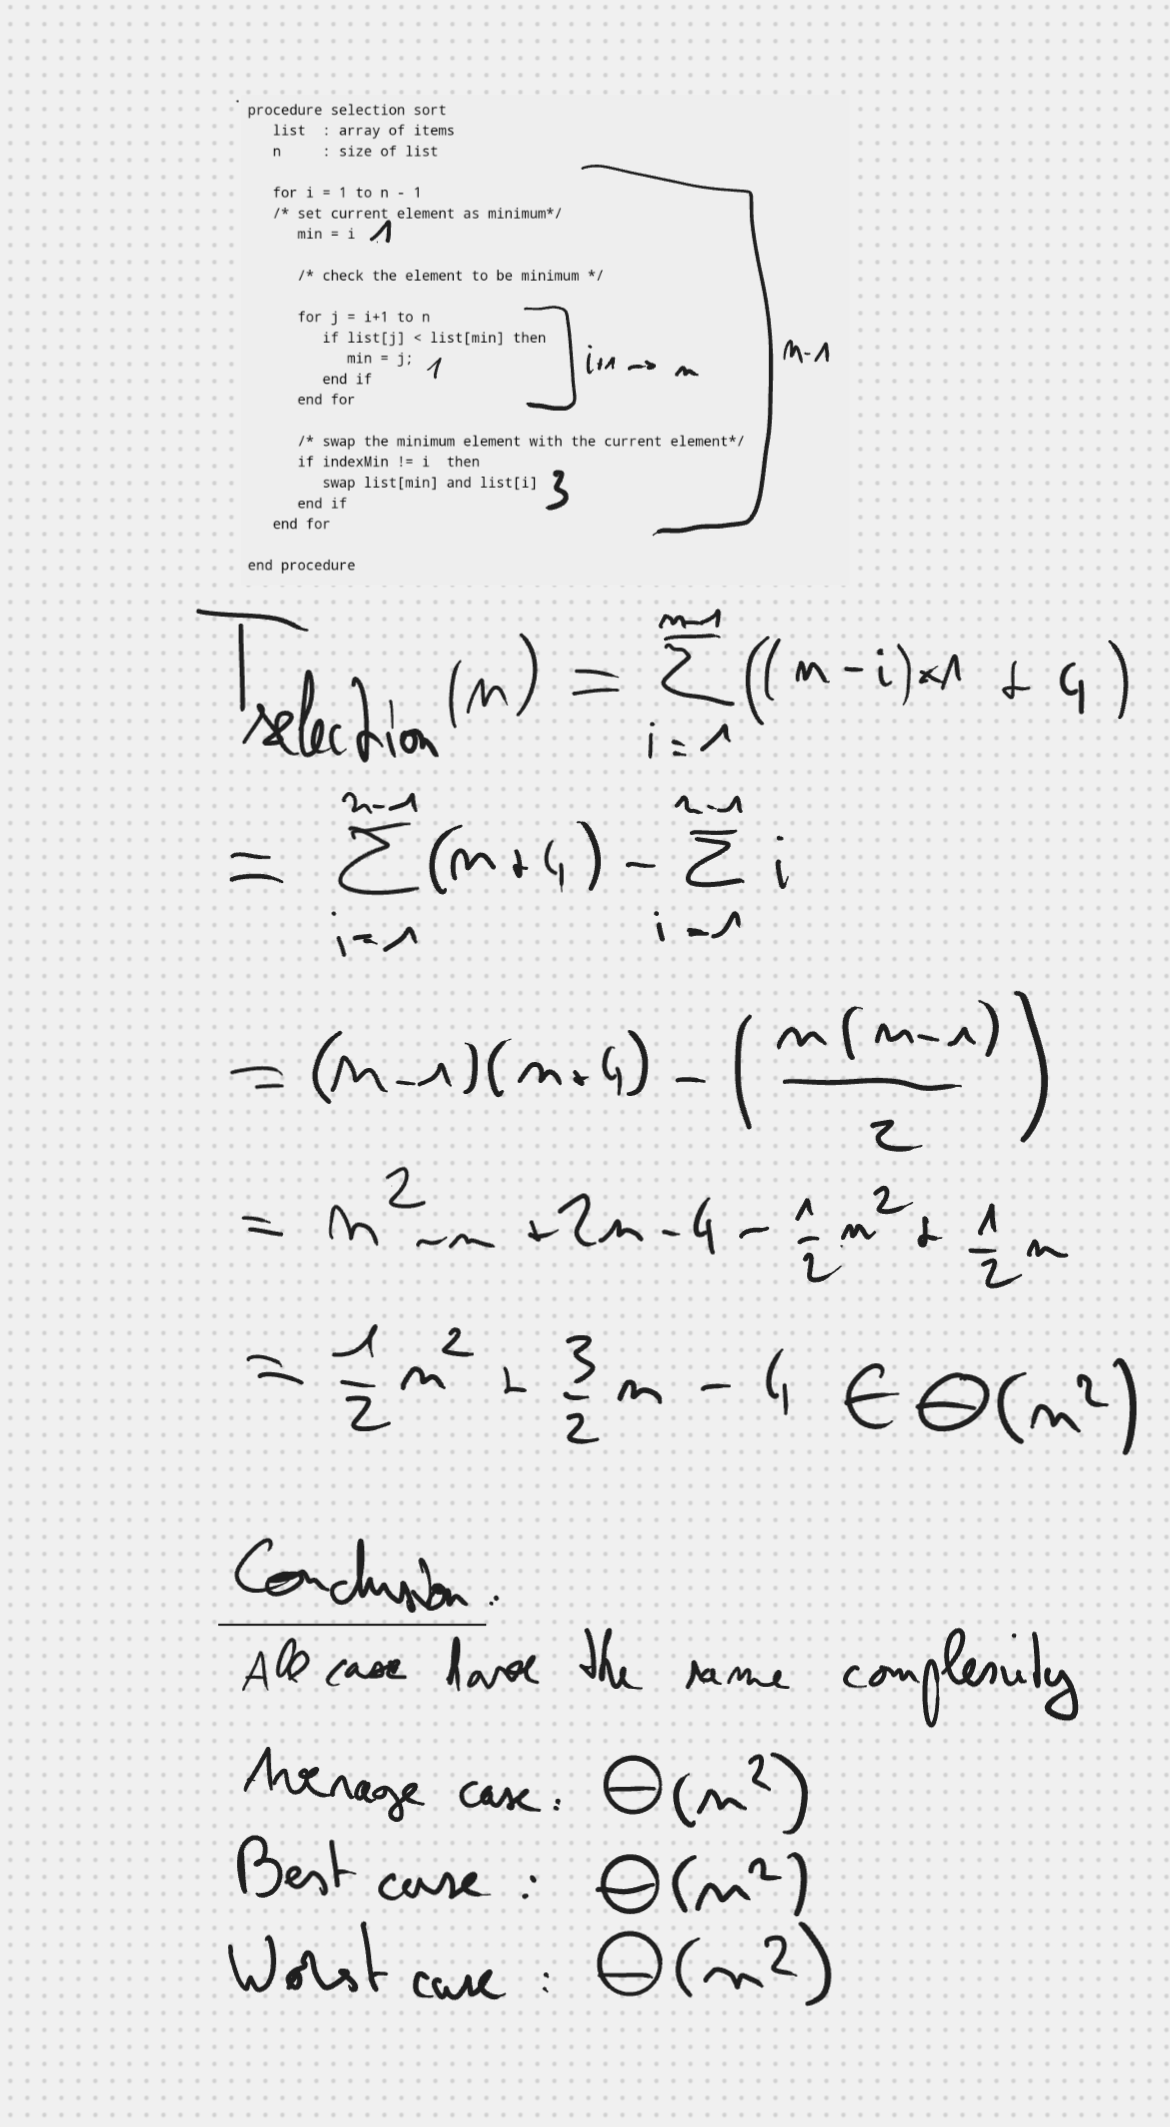 procedure selection sort
list : array of items
n : size of list
for i = 1 to n - 1
/* set current element as minimum*/
min = i 1
/* check the element to be minimum */
for j = i+1 to n
if list[j] < list[min] then
min = j; 1
end if
end for
i+1 → n
n-1
/* swap the minimum element with the current element*/
if indexMin != i then
swap list[min] and list[i] 3
end if
end for
end procedure
T_selection(n) = Σ_{i=1}^{n-1} ((n-i)×1 + 4)
= Σ_{i=1}^{n-1} (n+4) - Σ_{i=1}^{n-1} i
= (n-1)(n+4) - (n(n-1)/2)
= n² -n +2n -4 - 1/2 n² + 1/2 n
= 1/2 n² + 3/2 n - 4 ∈ Θ(n²)
Conclusion:
All case have the same complexity
Average case: Θ(n²)
Best case: Θ(n²)
Worst case: Θ(n²)